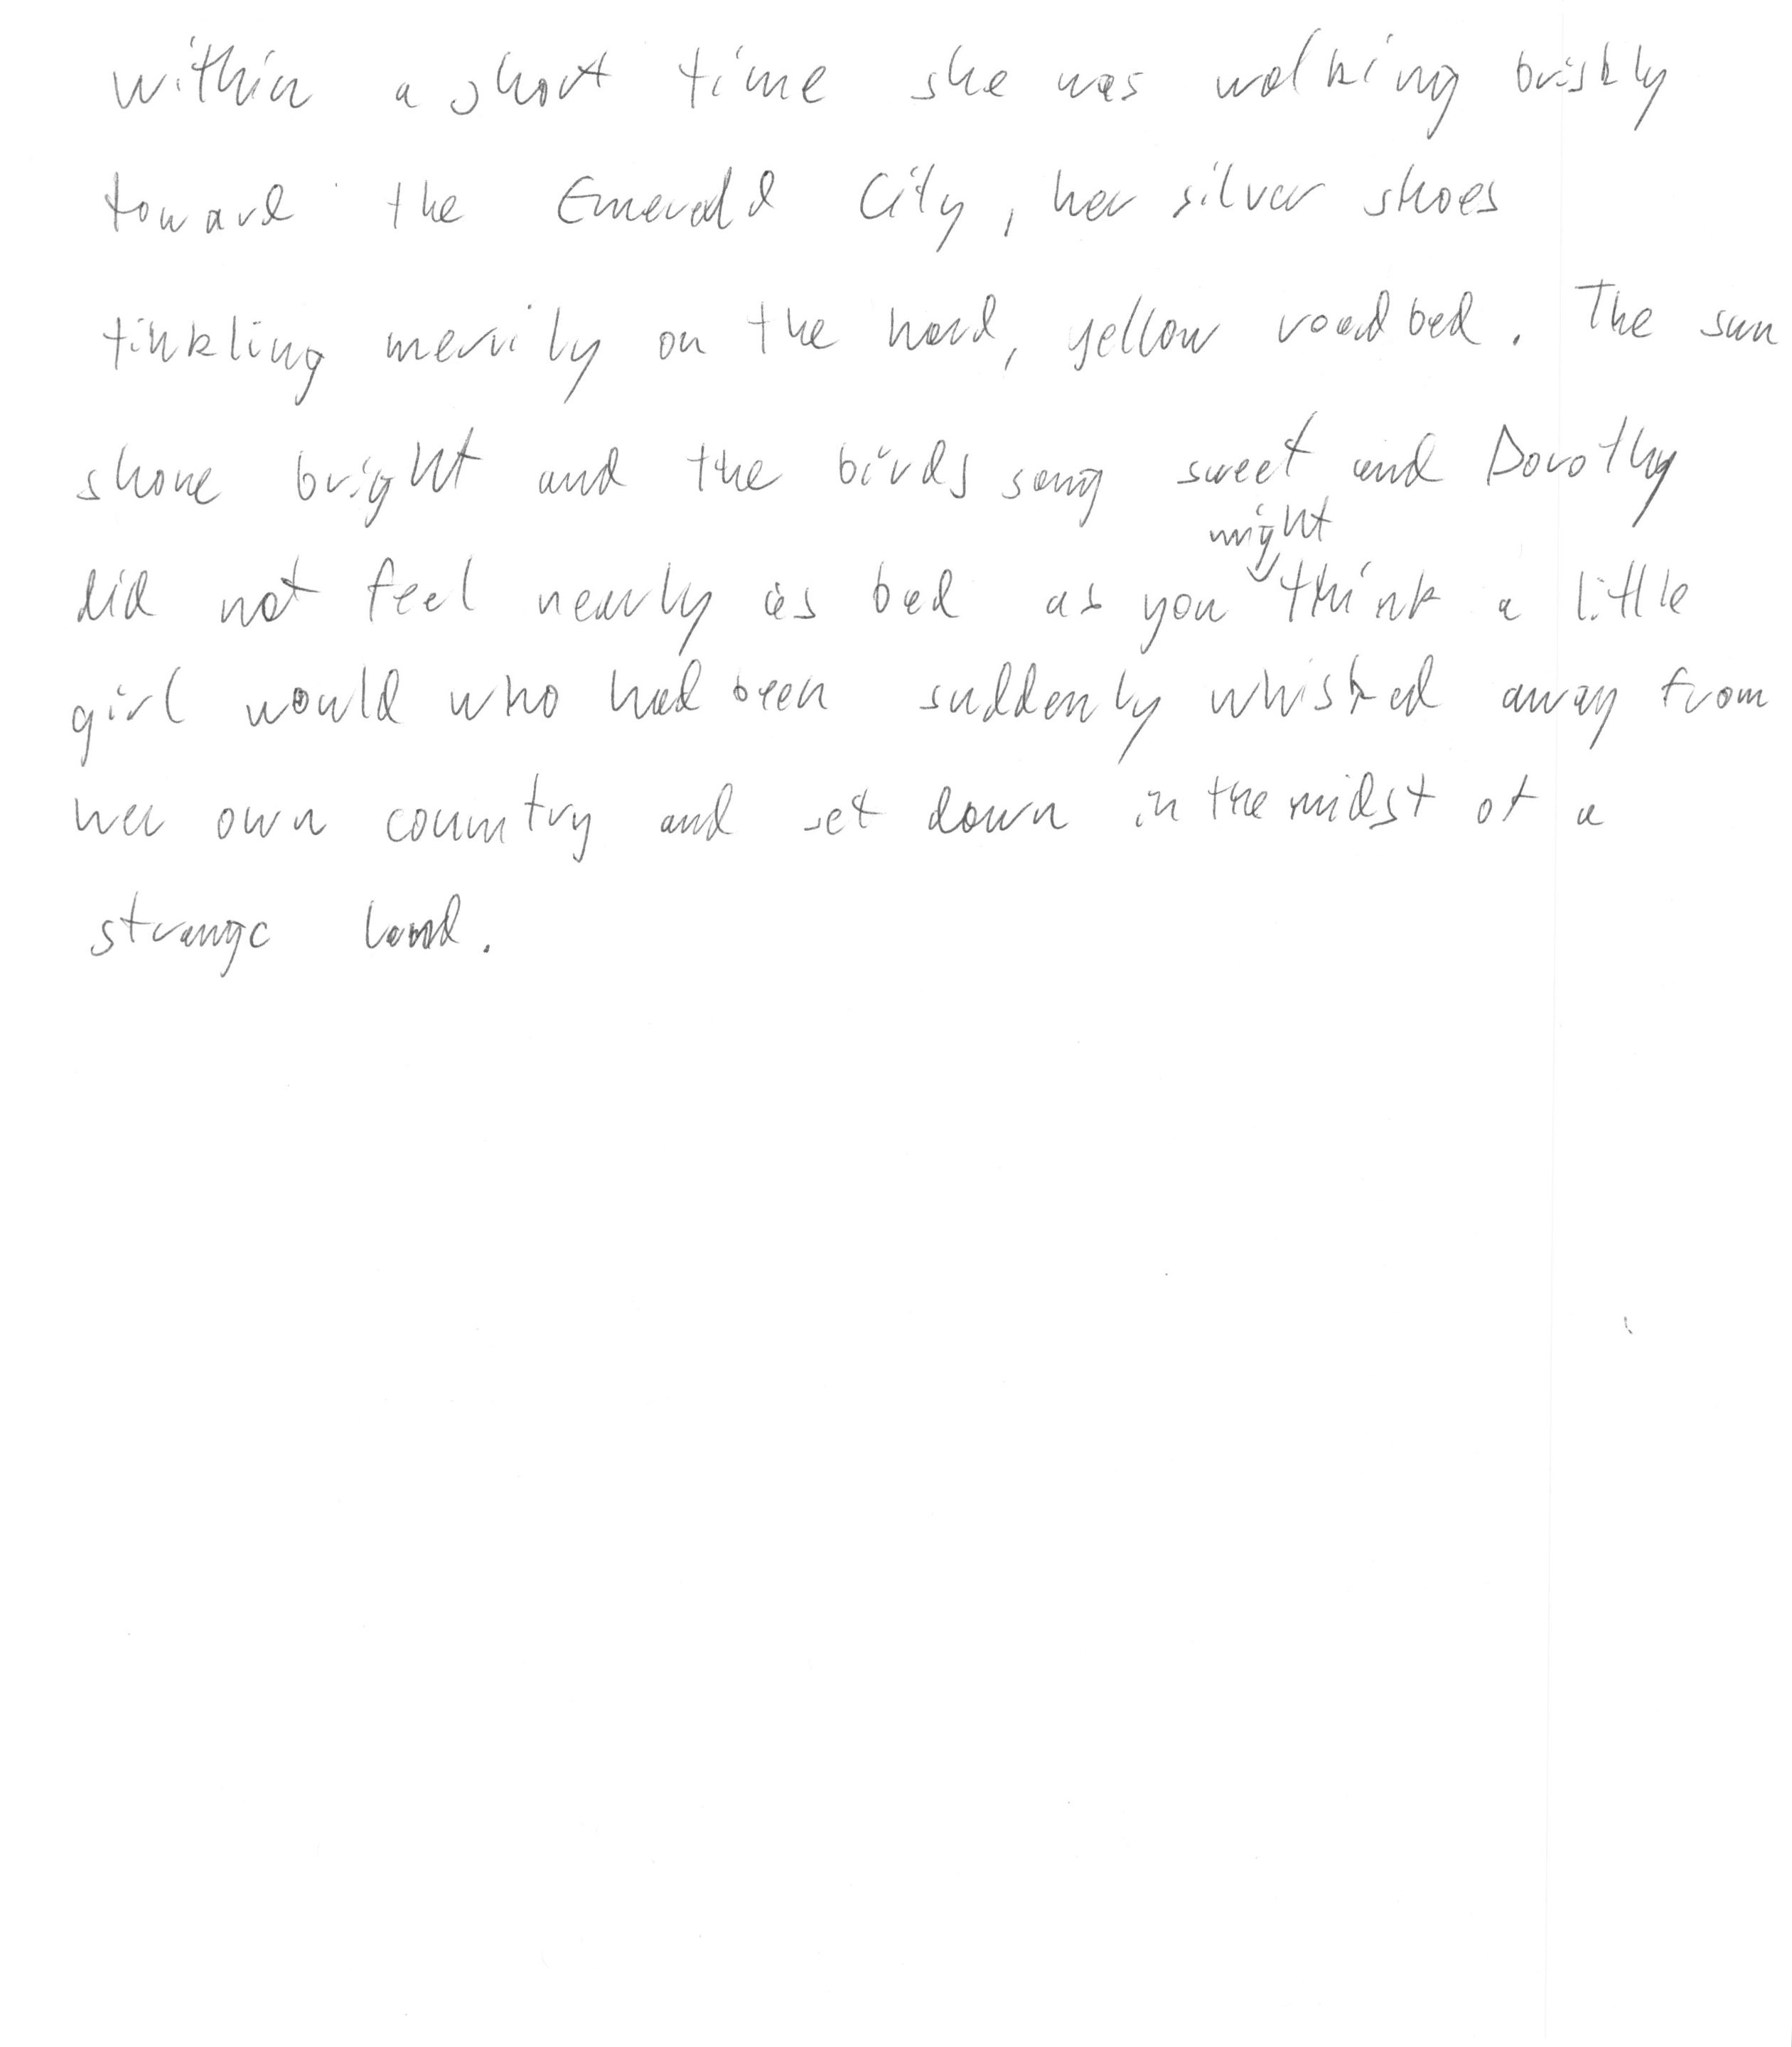 within a short time she was walking briskly
toward the Emerald City, her silver shoes
tinkling merrily on the hard, yellow roadbed. The sun
shone bright and the birds sang sweet and Dorothy
might
did not feel nearly as bad as you think a little
girl would who had been suddenly whisked away from
her own country and set down in the midst of a
strange land.